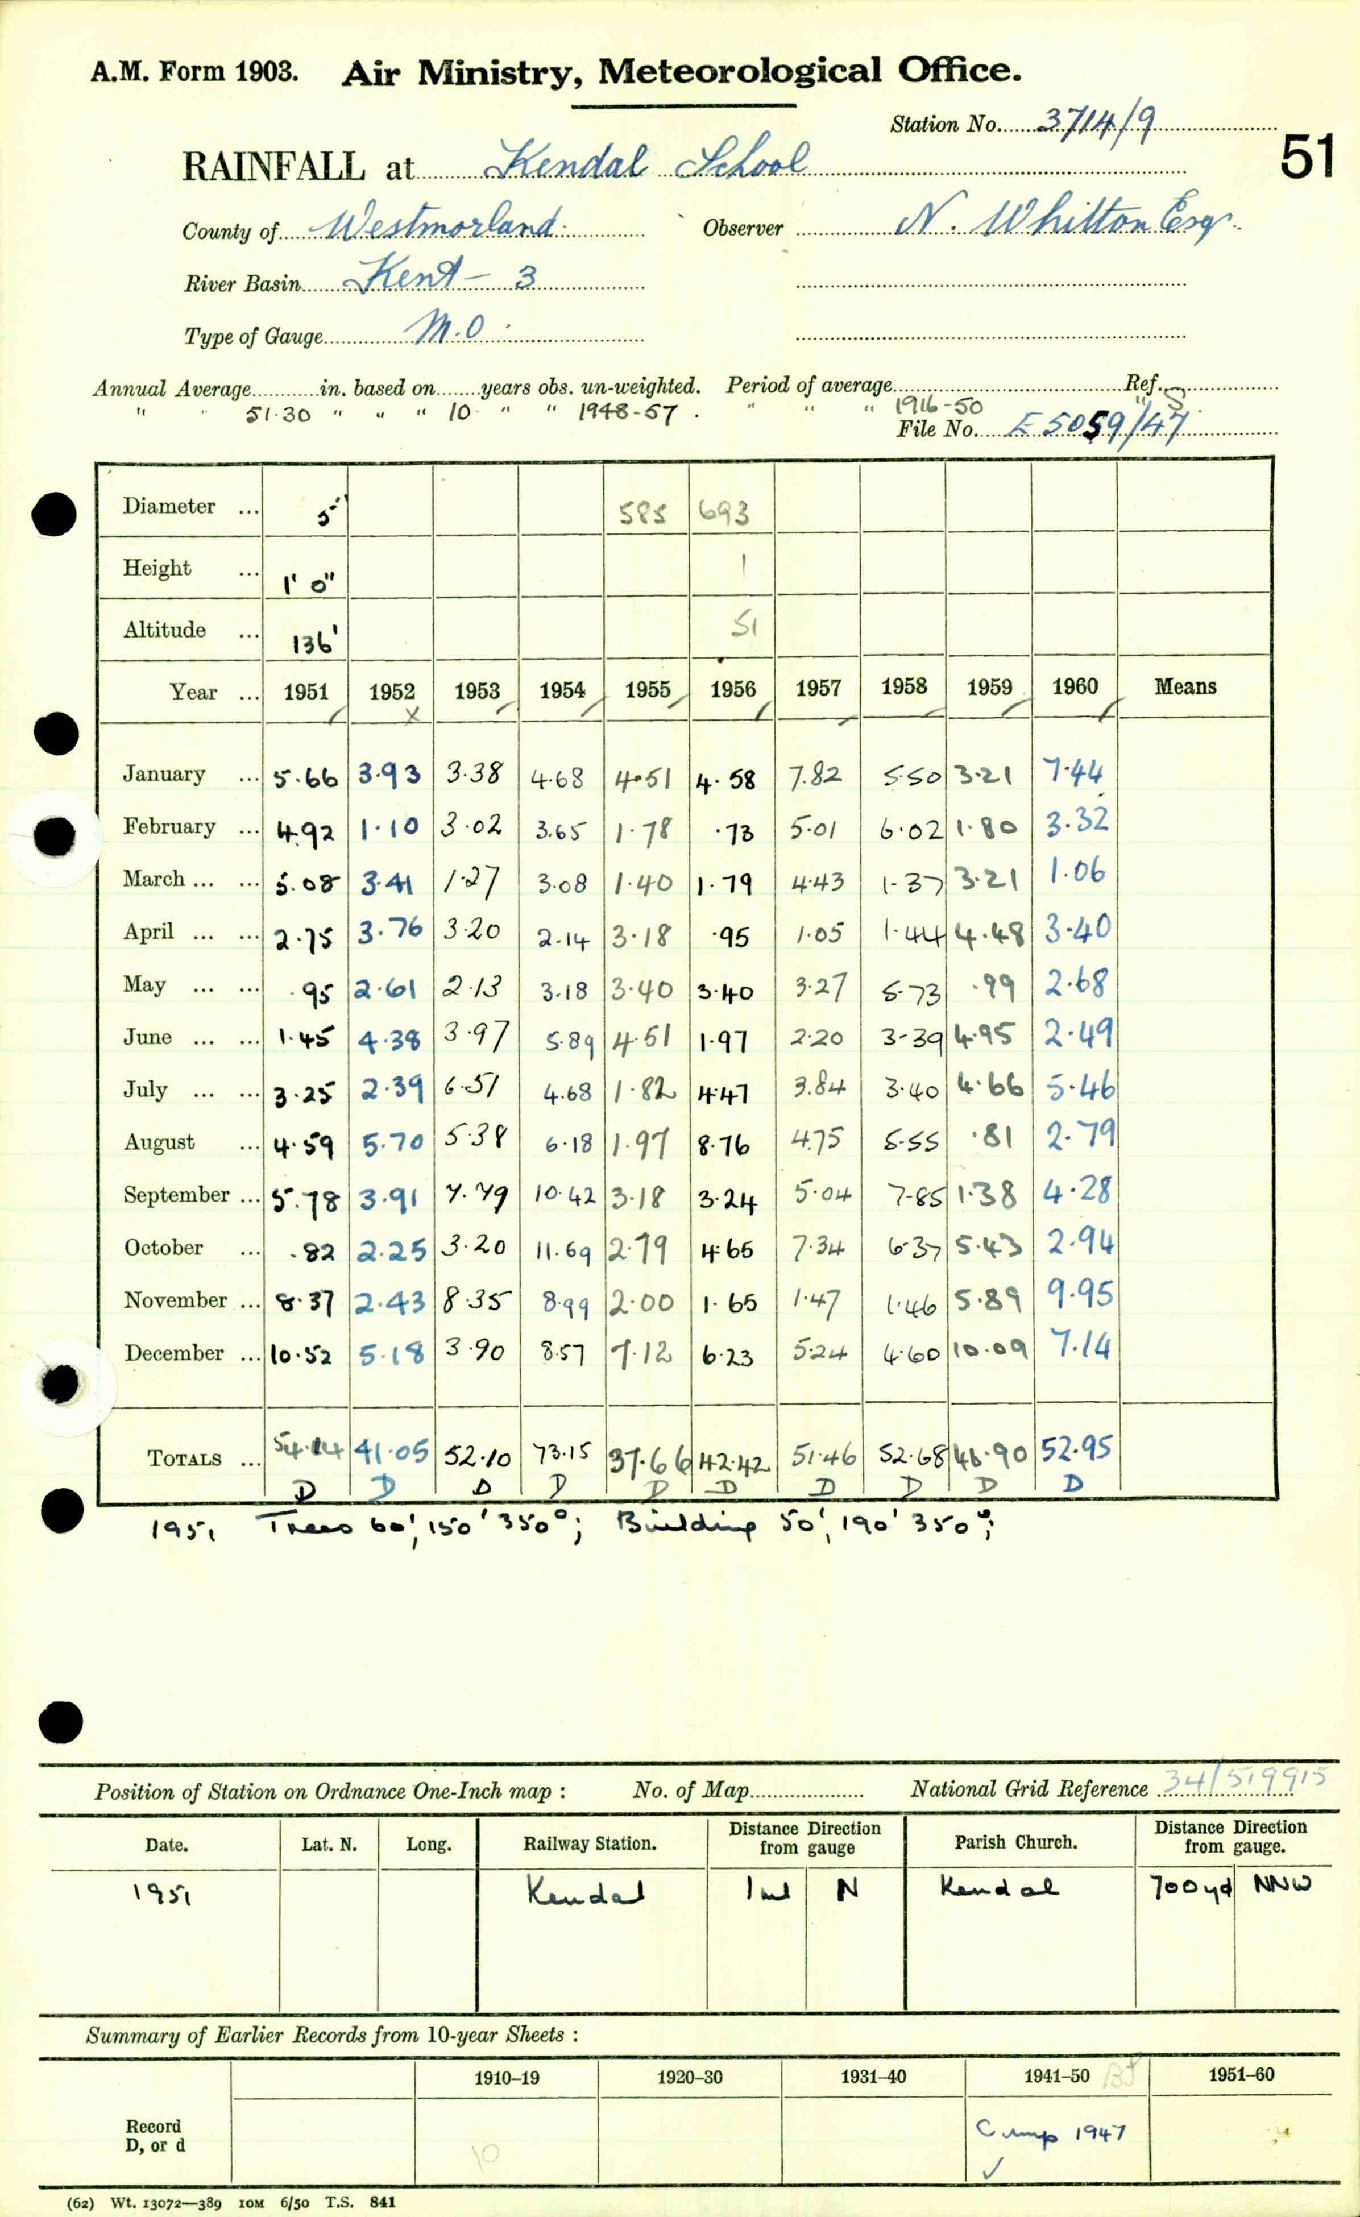 A.M. Form 1903. Air Ministry, Meteorological Office.
Station No. 3714/9
51
RAINFALL at Kendal School
County of Westmorland Observer N. Whitton Esq.
River Basin Kent – 3
Type of Gauge M.O.
Annual Average in. based on years obs. un-weighted. Period of average Ref.
" " 51.30 " " " 10 " " 1948-57. " " " 1916-50 " S
File No. E 5059/47
Diameter ... 5" 585 693
Height ... 1' 0" 1
Altitude ... 136' 51
Year ... 1951 1952 1953 1954 1955 1956 1957 1958 1959 1960 Means
January ... 5.66 3.93 3.38 4.68 4.51 4.58 7.82 5.50 3.21 7.44
February ... 4.92 1.10 3.02 3.65 1.78 .73 5.01 6.02 1.80 3.32
March ... ... 5.08 3.41 1.27 3.08 1.40 1.79 4.43 1.37 3.21 1.06
April ... ... 2.75 3.76 3.20 2.14 3.18 .95 1.05 1.44 4.48 3.40
May ... ... .95 2.61 2.13 3.18 3.40 3.40 3.27 5.73 .99 2.68
June ... ... 1.45 4.38 3.97 5.89 4.51 1.97 2.20 3.39 4.95 2.49
July ... ... 3.25 2.39 6.51 4.68 1.82 4.47 3.84 3.40 4.66 5.46
August ... 4.59 5.70 5.38 6.18 1.97 8.76 4.75 5.55 .81 2.79
September ... 5.78 3.91 7.79 10.42 3.18 3.24 5.04 7.85 1.38 4.28
October ... .82 2.25 3.20 11.69 2.79 4.65 7.34 6.37 5.43 2.94
November ... 8.37 2.43 8.35 8.99 2.00 1.65 1.47 1.46 5.89 9.95
December ... 10.52 5.18 3.90 8.57 7.12 6.23 5.24 4.60 10.09 7.14
TOTALS ... 54.14 41.05 52.10 73.15 37.66 42.42 51.46 52.68 46.90 52.95
D D D D D D D D D D
1951 Trees 60', 150' 350°; Building 50', 190' 350°;
Position of Station on Ordnance One-Inch map : No. of Map National Grid Reference 34/519915
Date. Lat. N. Long. Railway Station. Distance Direction from gauge Parish Church. Distance Direction from gauge.
1951 Kendal 1 ml N Kendal 700 yd NNW
Summary of Earlier Records from 10-year Sheets :
1910–19 1920–30 1931–40 1941–50 1951–60
Record D, or d 10 Comp 1947
(62) Wt. 13072—389 10M 6/50 T.S. 841